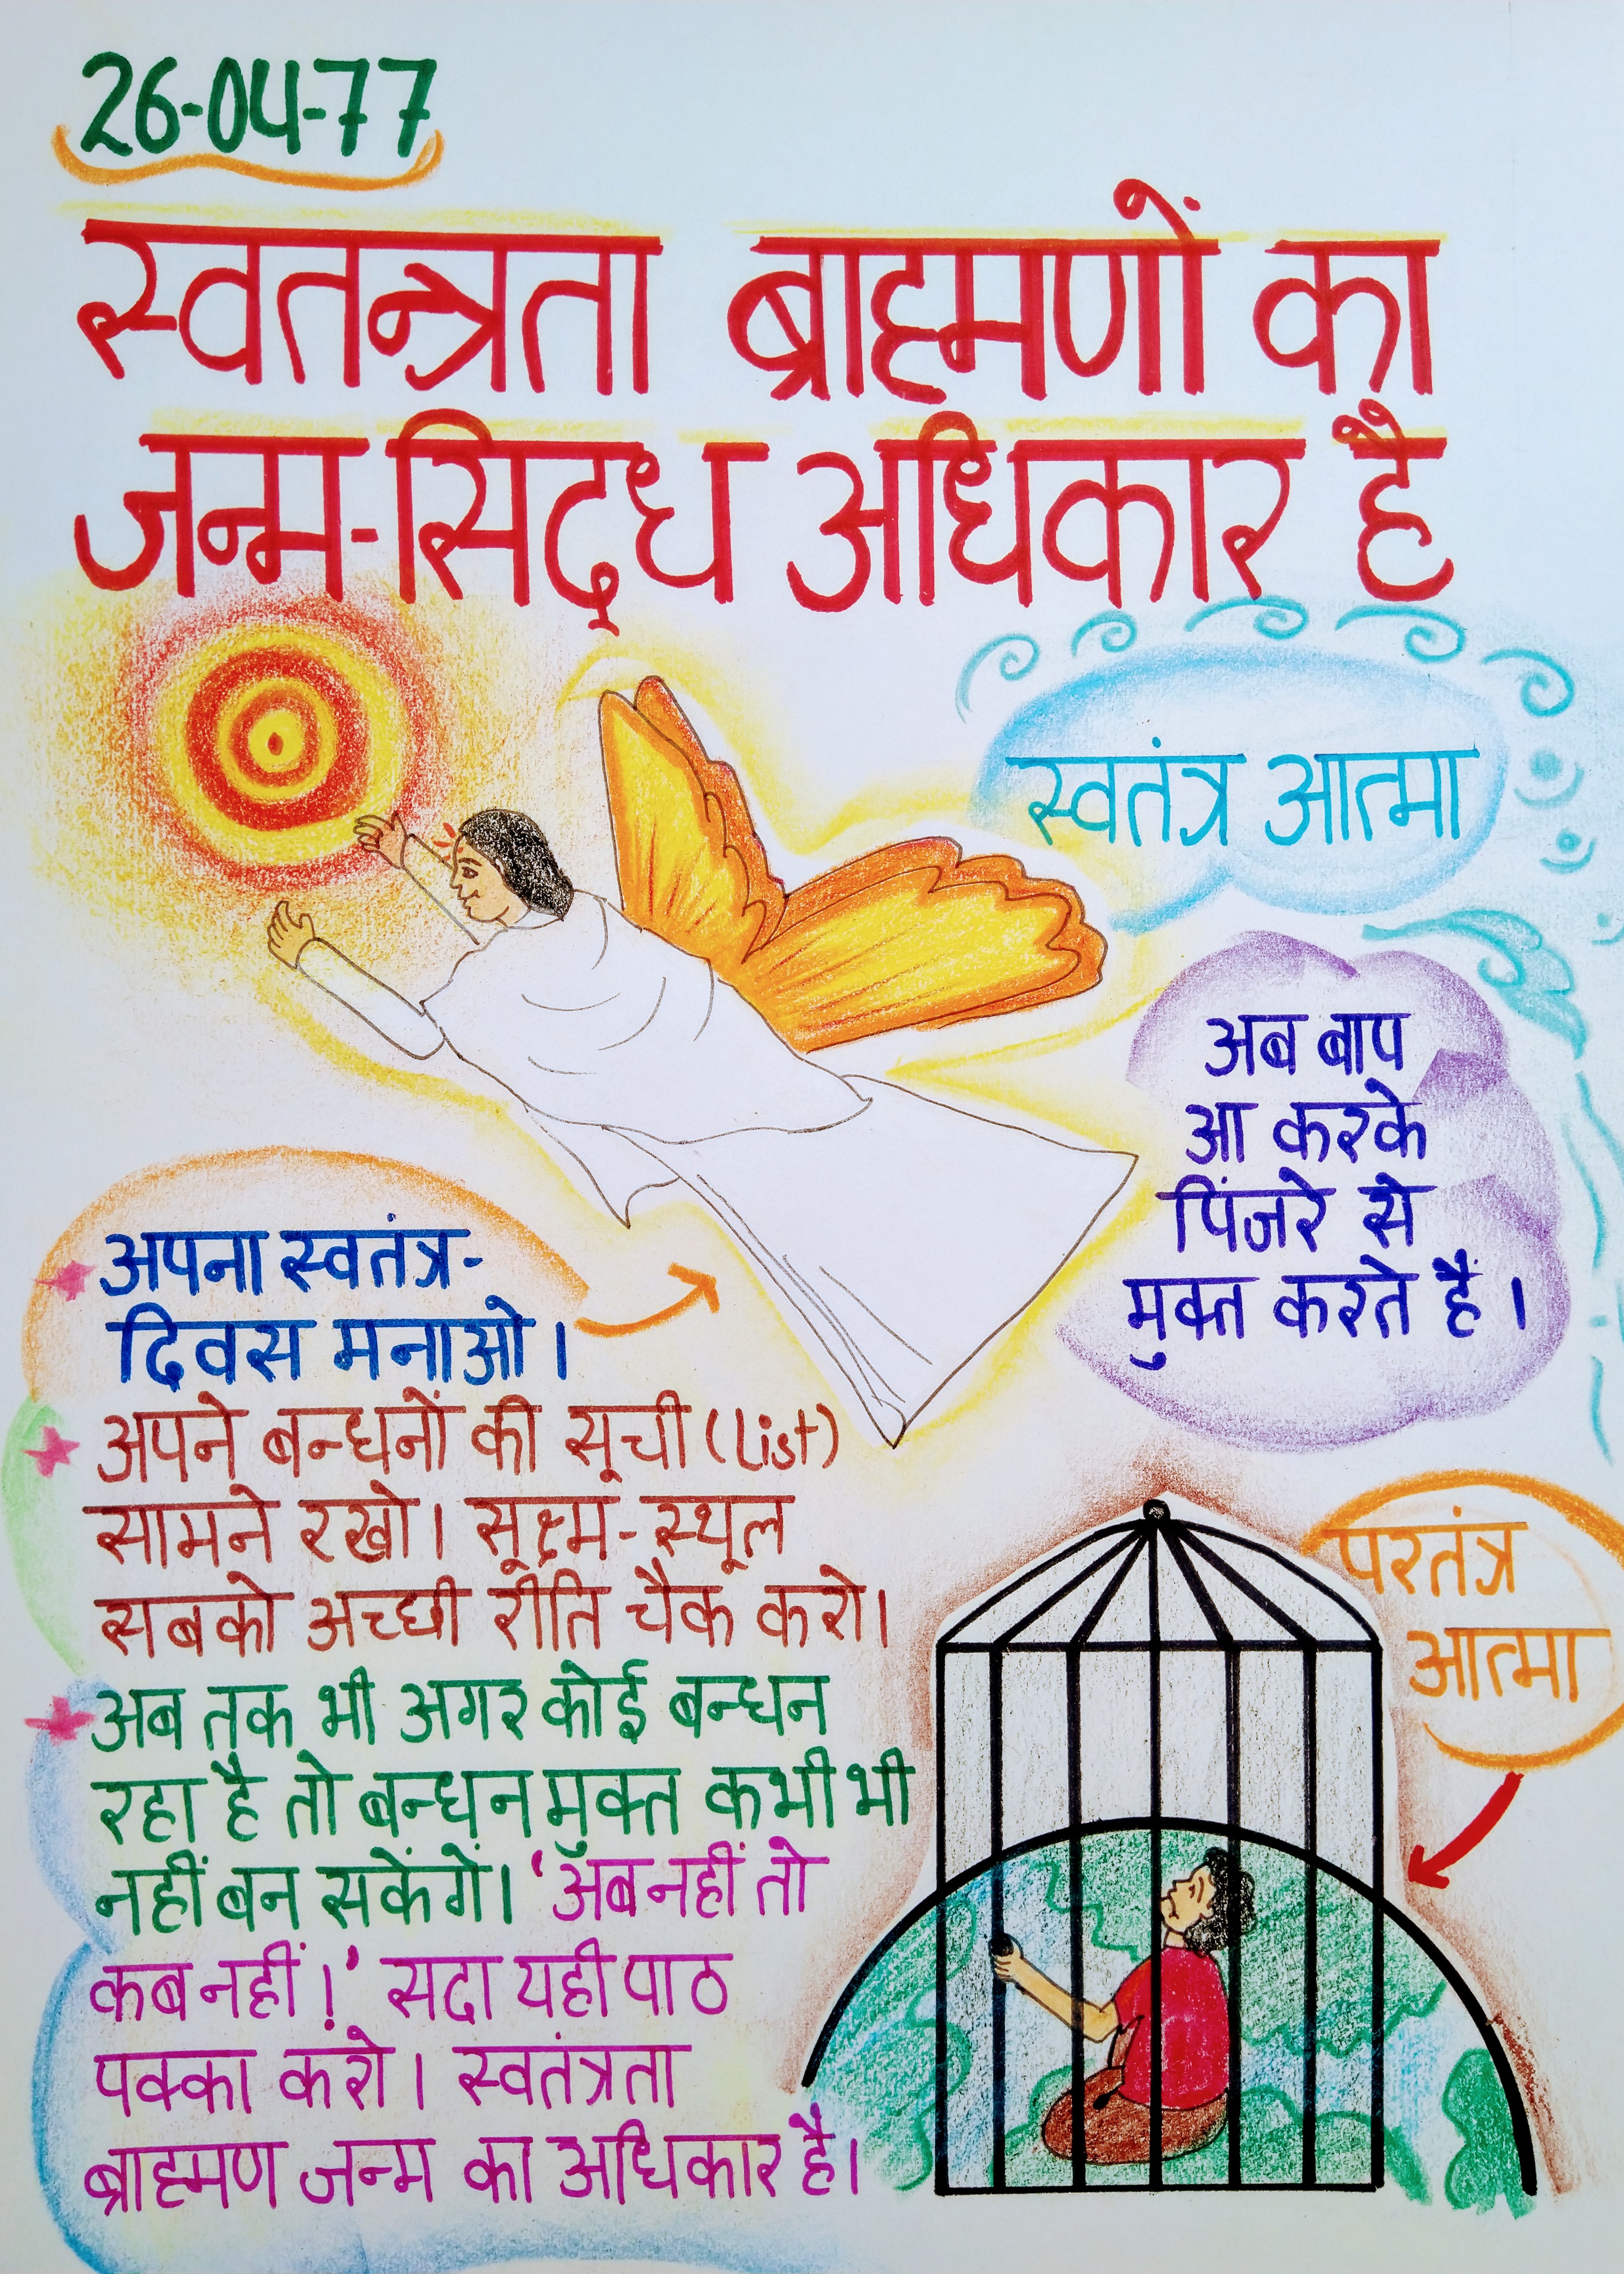 26-04-77
स्वतन्त्रता ब्राह्मणों का
जन्म-सिद्ध अधिकार है
स्वतंत्र आत्मा
अब बाप
आ करके
पिंजरे से
मुक्त करते हैं।
अपना स्वतंत्र-
दिवस मनाओ।
अपने बन्धनों की सूची (list)
सामने रखो। सूक्ष्म-स्थूल
सबको अच्छी रीति चैक करो।
अब तक भी अगर कोई बन्धन
रहा है तो बन्धन मुक्त कभी भी
नहीं बन सकेंगें। 'अब नहीं तो
कब नहीं!' सदा यही पाठ
पक्का करो। स्वतंत्रता
ब्राह्मण जन्म का अधिकार है।
परतंत्र
आत्मा